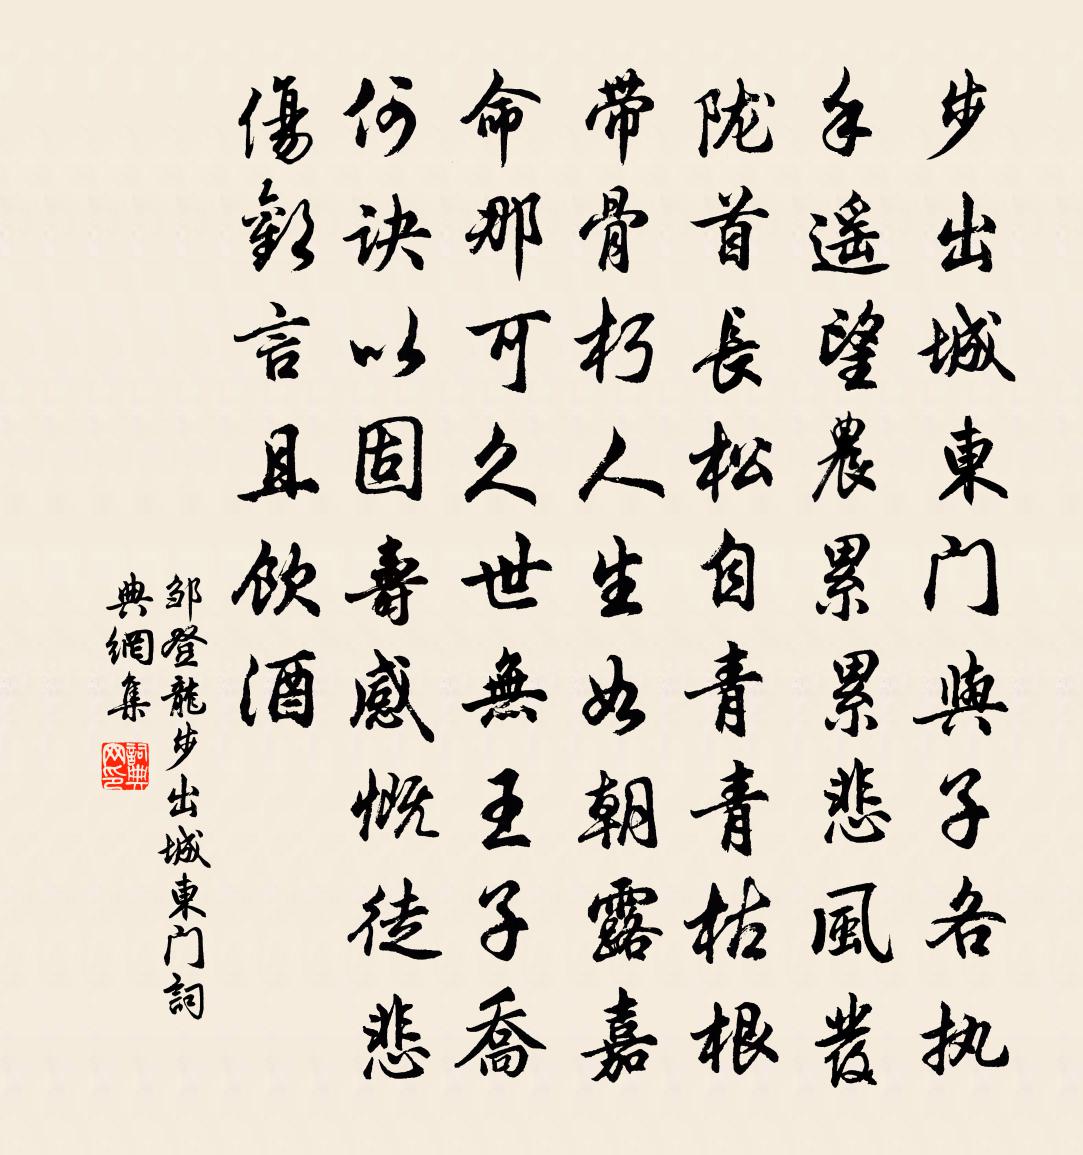 步出城東门與子各执
手遥望農累累悲風發
陇首長松自青青枯根
带骨朽人生如朝露嘉
命那可久世無王子喬
何诀以固壽感慨徒悲
傷勸言且飲酒
邹登龍步出城東门詞
典網集
詞典网印